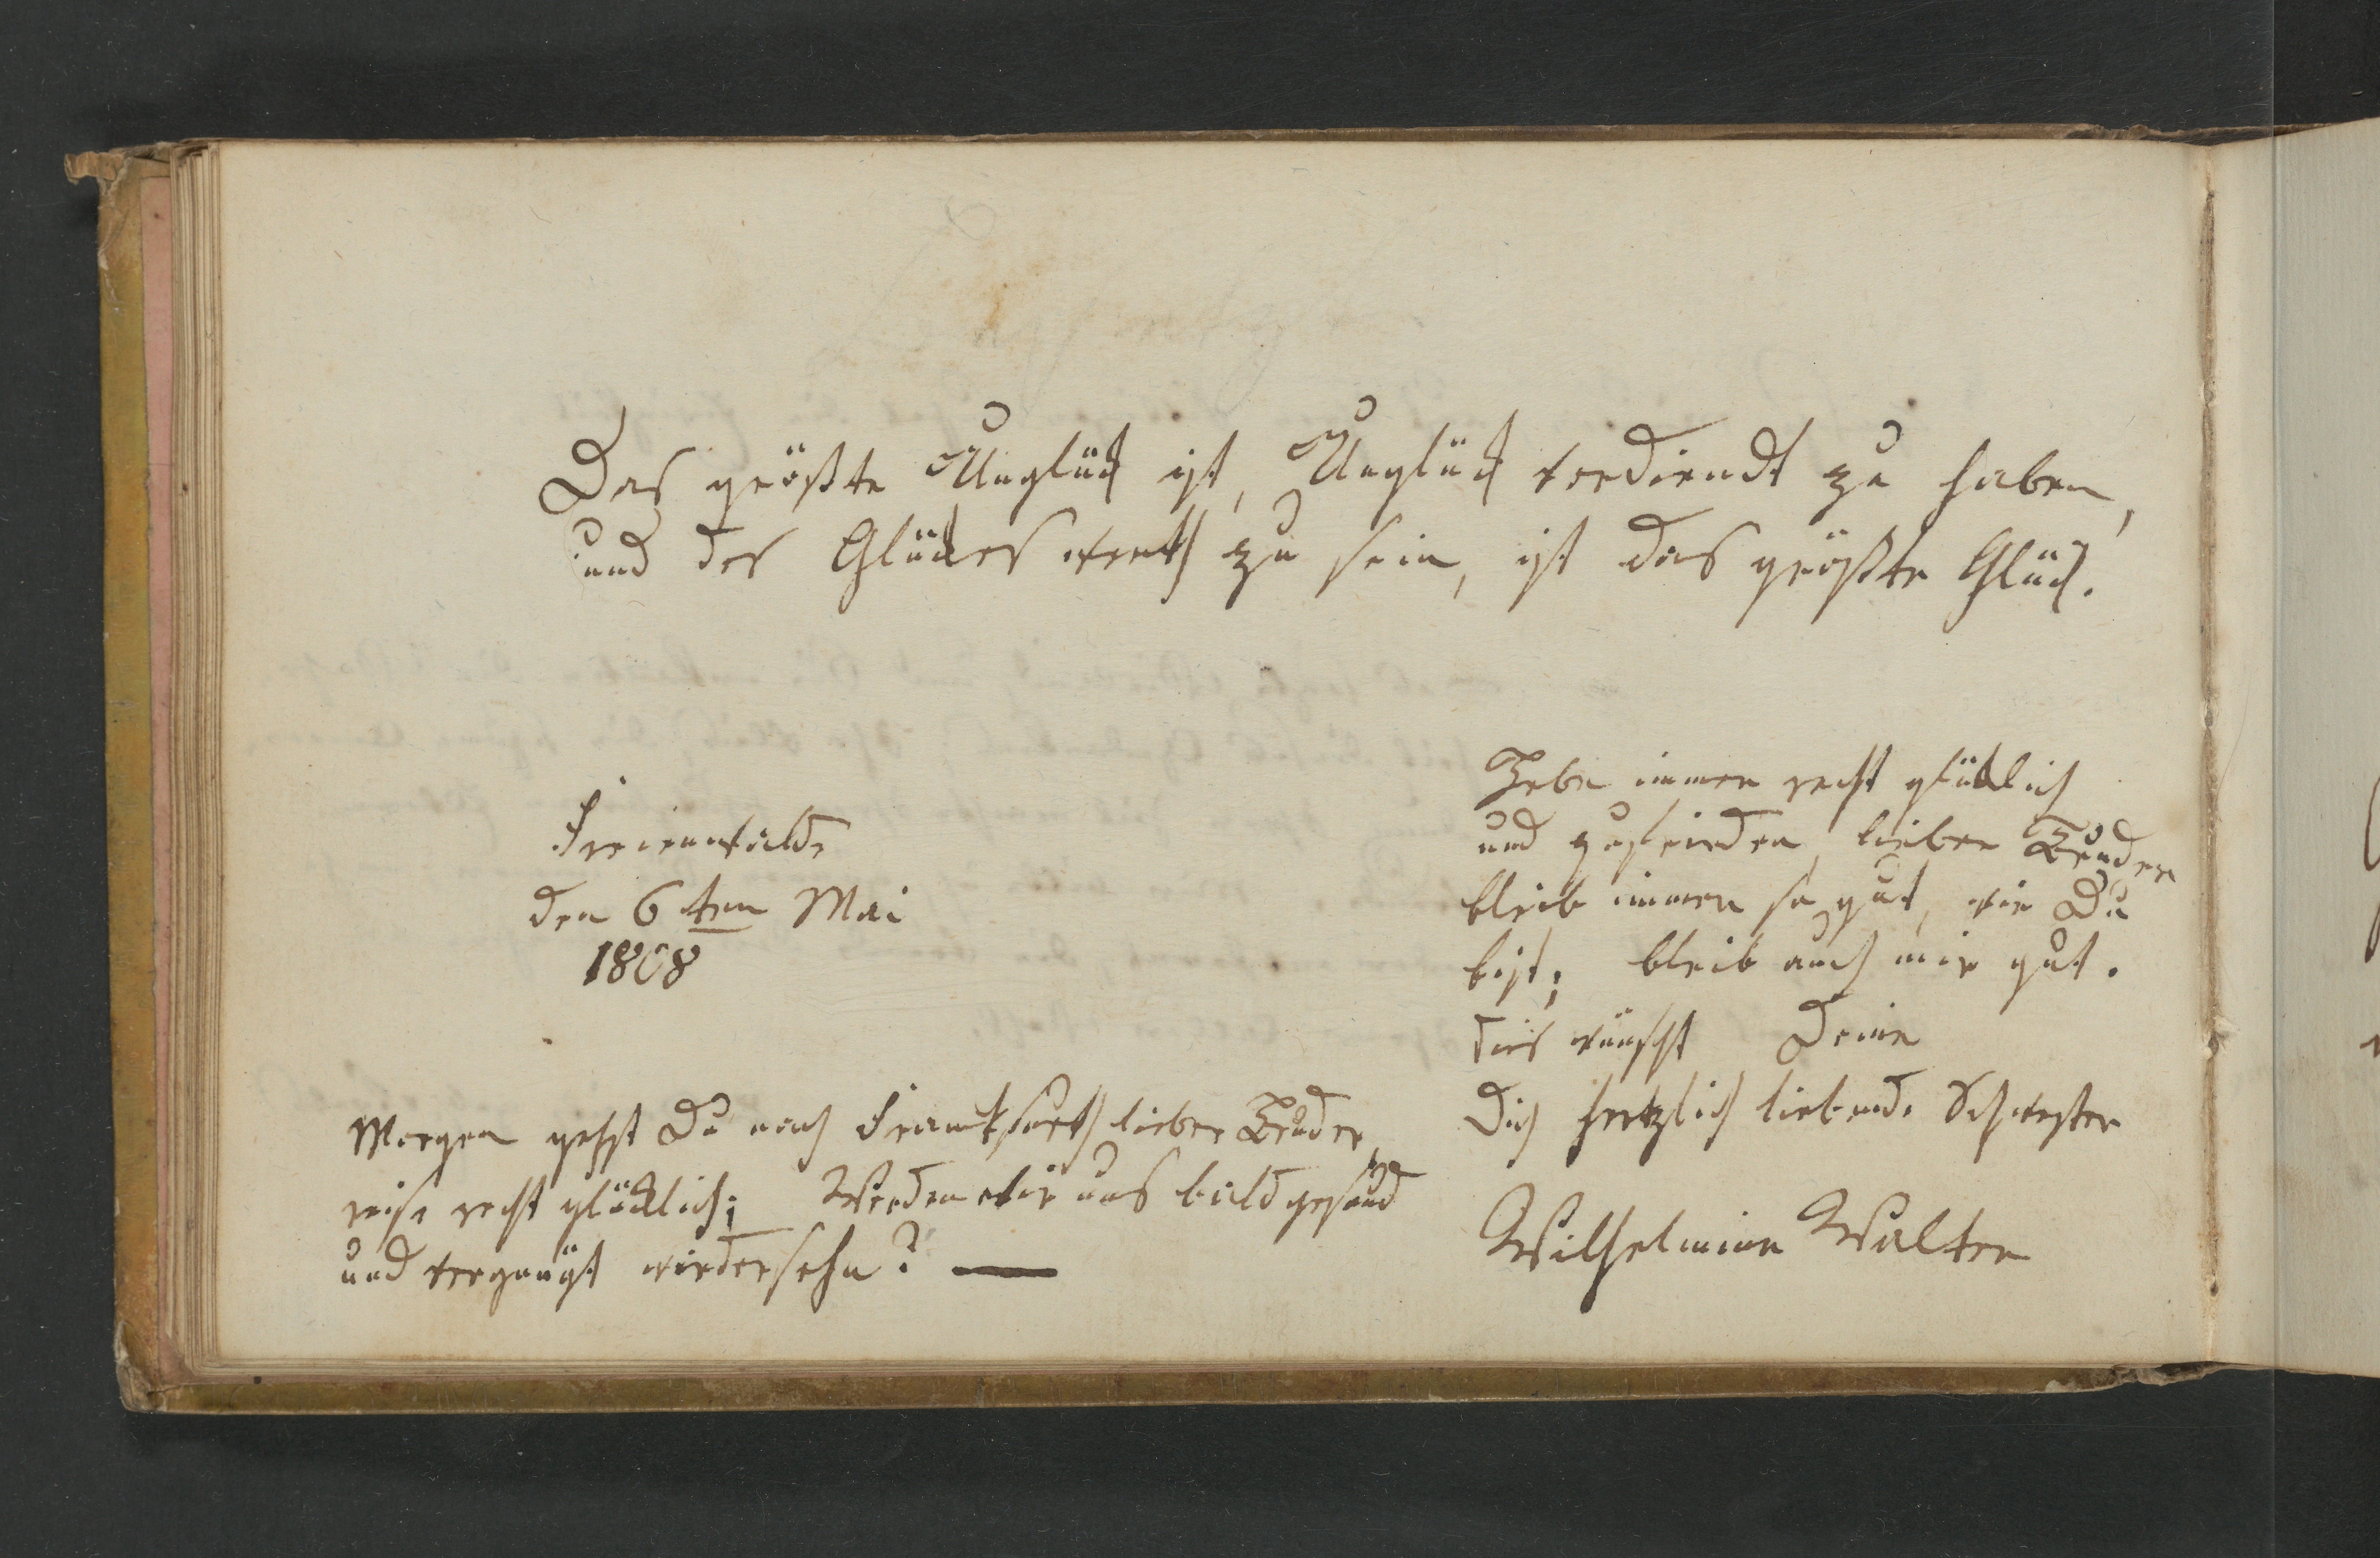 Das größte Unglück ist, Unglück verdiendt zu haben,
und des Glückes werth zu sein, ist das größte Glück.
Freienwalde
den 6ten Mai
1808
Lebe immer recht glücklich
und zufrieden, lieber Bruder
bleib immer so gut, wie Du
bist; bleib auch mir gut.
dies wünscht Deine
Dich hertzlich liebende Schwester
Wilhelmine Walter
Morgen gehst Du nach Frankfurth lieber Bruder,
reise recht glücklich; Werden wir uns bald gesund
und vergnügt wiedersehn? —